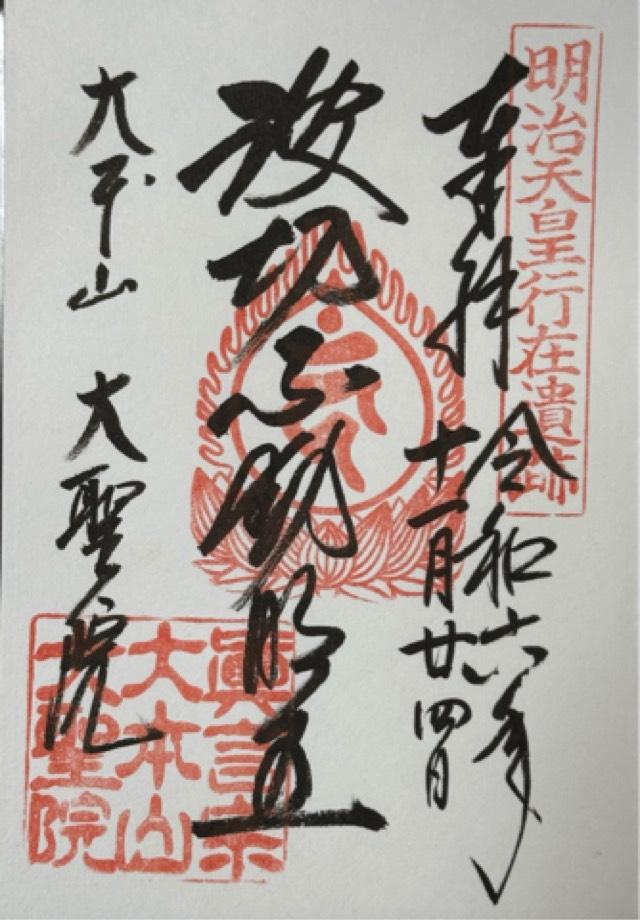 明治天皇行在遺跡
奉拝 令和六年
十一月廿四日
波切不動明王
大本山 大聖院
眞言宗
大本山
大聖院